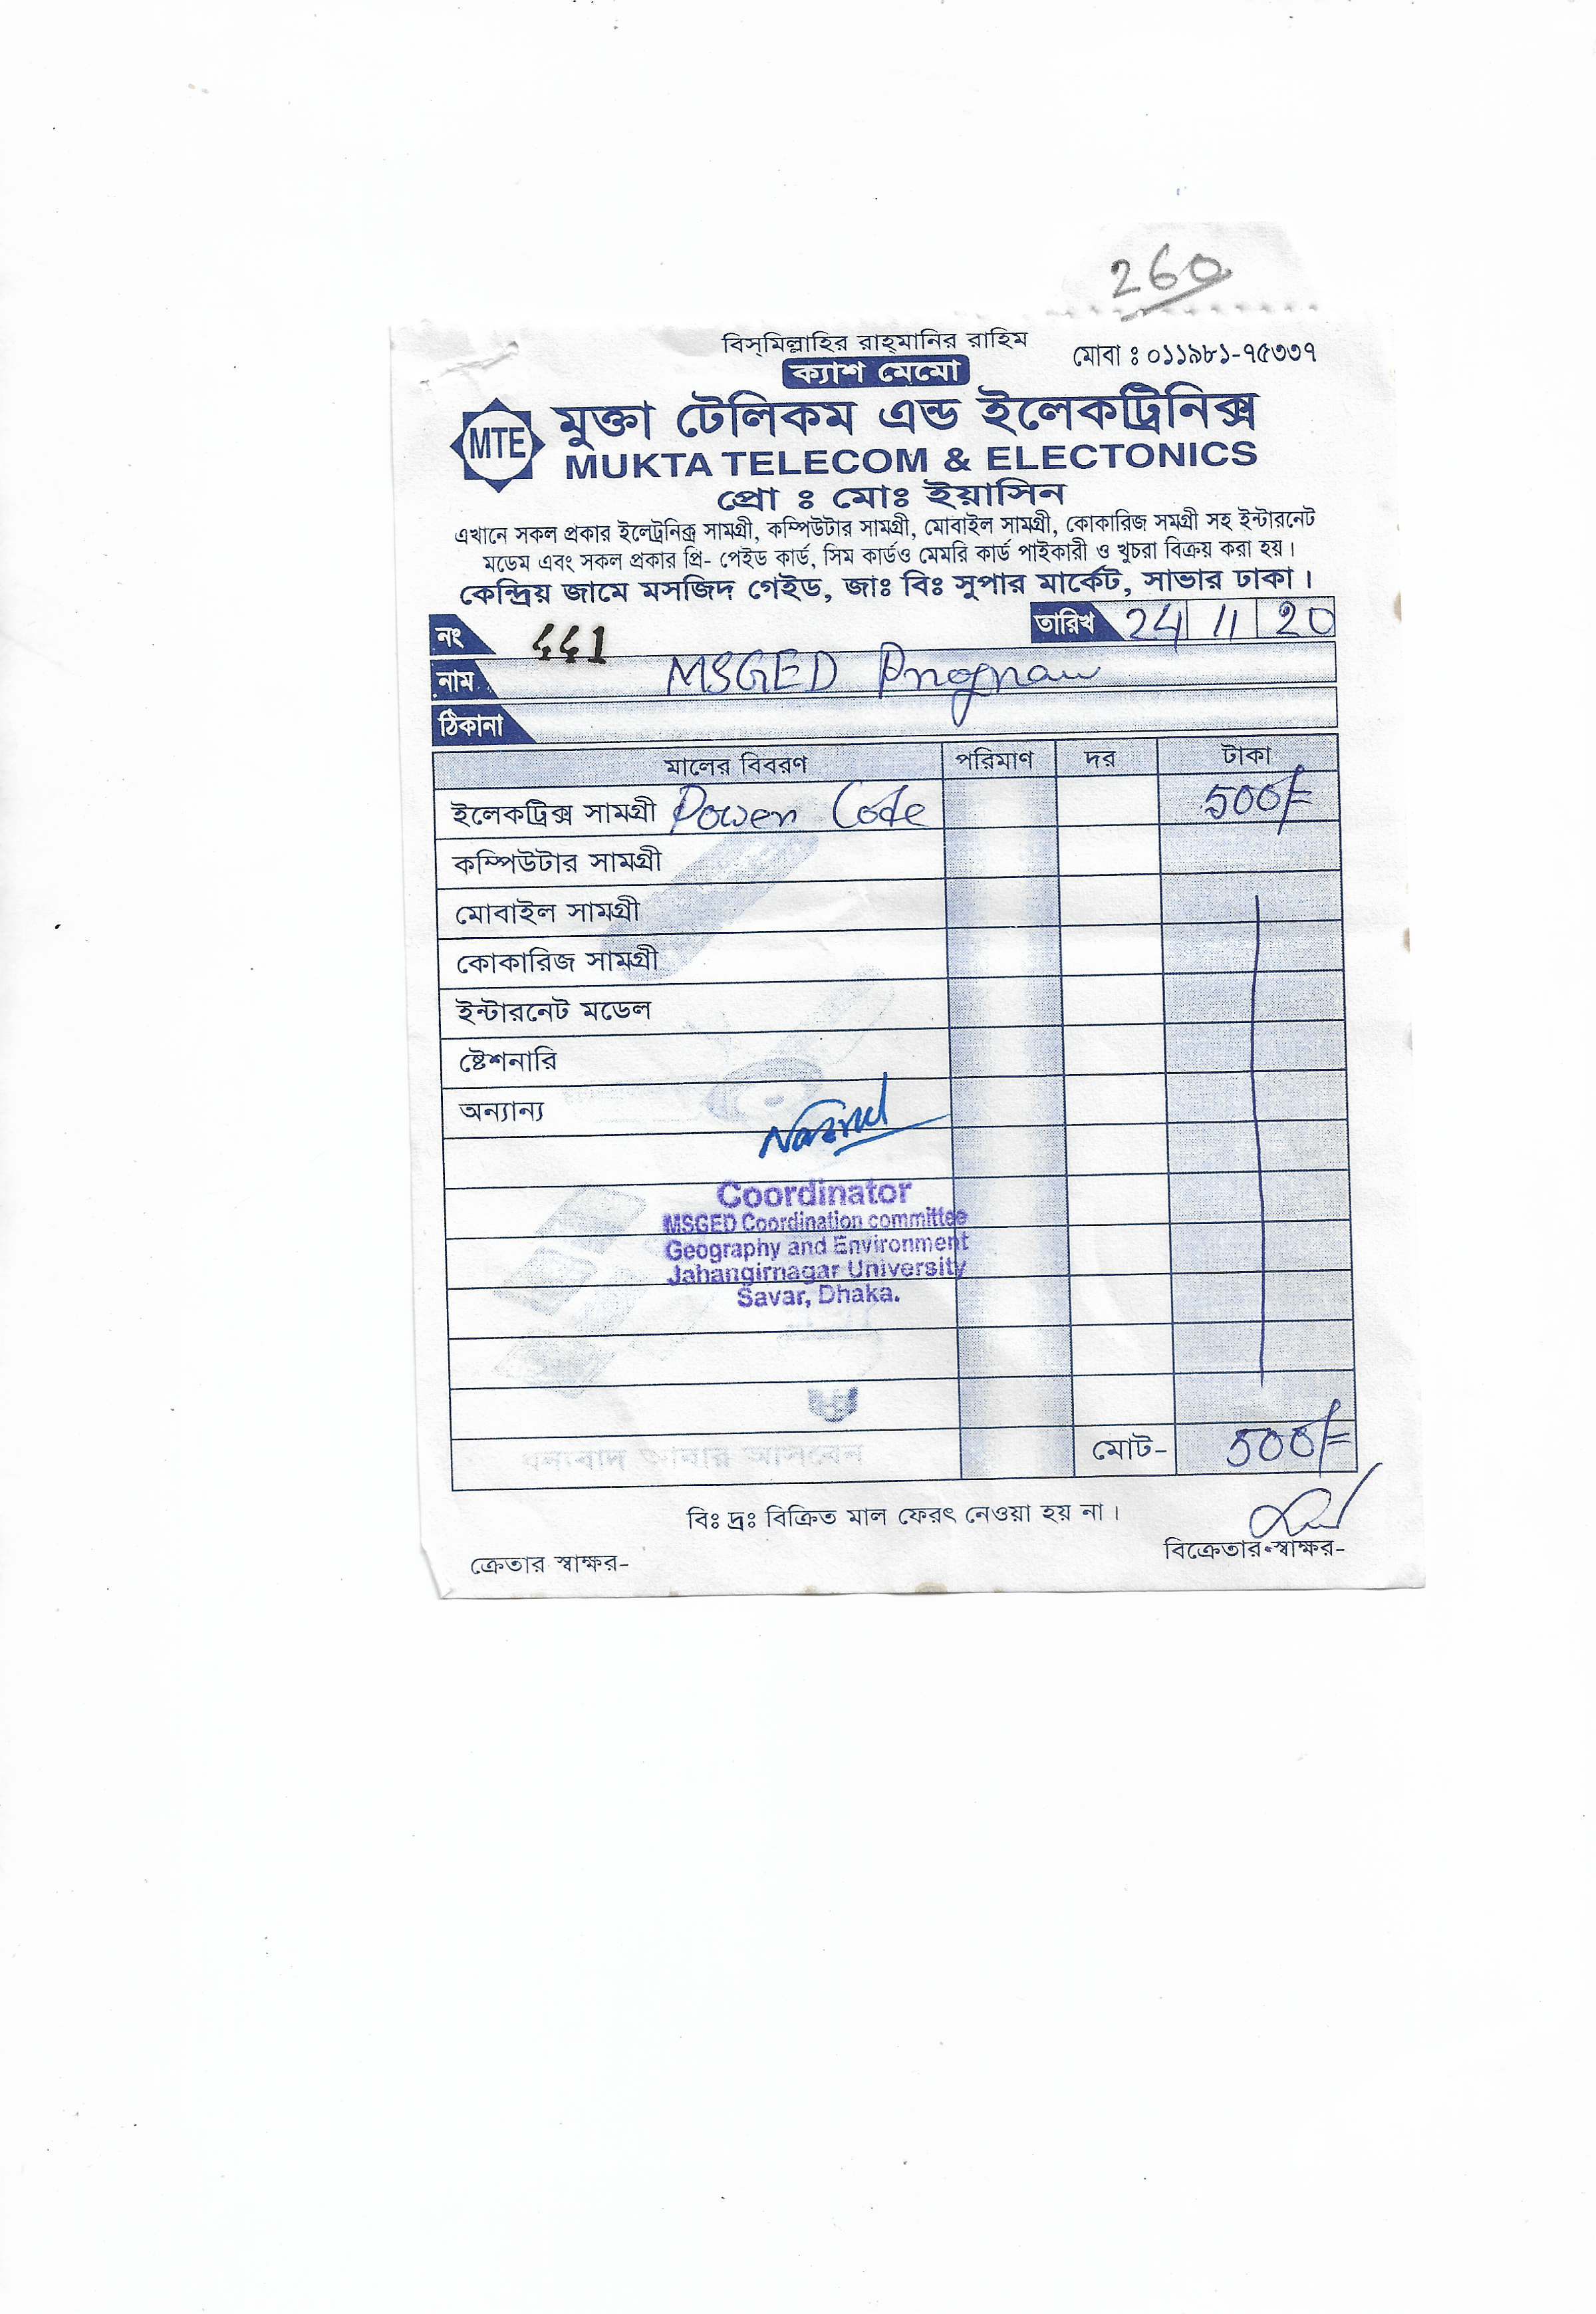 260
বিস্‌মিল্লাহির রাহ্‌মানির রাহিম
মোবা ঃ ০১১৯৮১-৭৫৩৩৭
ক্যাশ মেমো
MTE
মুক্তা টেলিকম এন্ড ইলেকট্রিনিক্স
MUKTA TELECOM & ELECTONICS
প্রো ঃ মোঃ ইয়াসিন
এখানে সকল প্রকার ইলেট্রনিক্স সামগ্রী, কম্পিউটার সামগ্রী, মোবাইল সামগ্রী, কোকারিজ সমগ্রী সহ ইন্টারনেট
মডেম এবং সকল প্রকার প্রি- পেইড কার্ড, সিম কার্ডও মেমরি কার্ড পাইকারী ও খুচরা বিক্রয় করা হয়।
কেন্দ্রিয় জামে মসজিদ গেইড, জাঃ বিঃ সুপার মার্কেট, সাভার ঢাকা।
নং 441 তারিখ 24 11 20
নাম MSGED Program
ঠিকানা
মালের বিবরণ পরিমাণ দর টাকা
ইলেকট্রিক্স সামগ্রী Power Code 500/=
কম্পিউটার সামগ্রী
মোবাইল সামগ্রী
কোকারিজ সামগ্রী
ইন্টারনেট মডেল
ষ্টেশনারি
অন্যান্য
Coordinator
MSGED Coordination committee
Geography and Environment
Jahangirnagar University
Savar, Dhaka.
মোট- 500/=
বিঃ দ্রঃ বিক্রিত মাল ফেরৎ নেওয়া হয় না।
ক্রেতার স্বাক্ষর-
বিক্রেতার স্বাক্ষর-